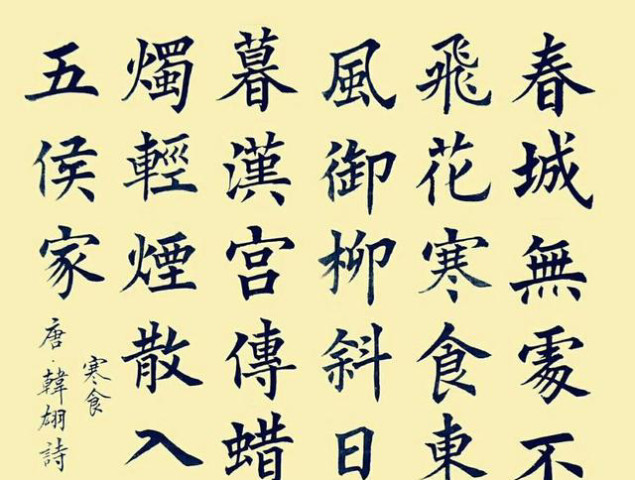 春城無處不
飛花寒食東
風御柳斜日
暮漢宮傳蜡
燭輕煙散入
五侯家
寒食
唐·韓翃詩